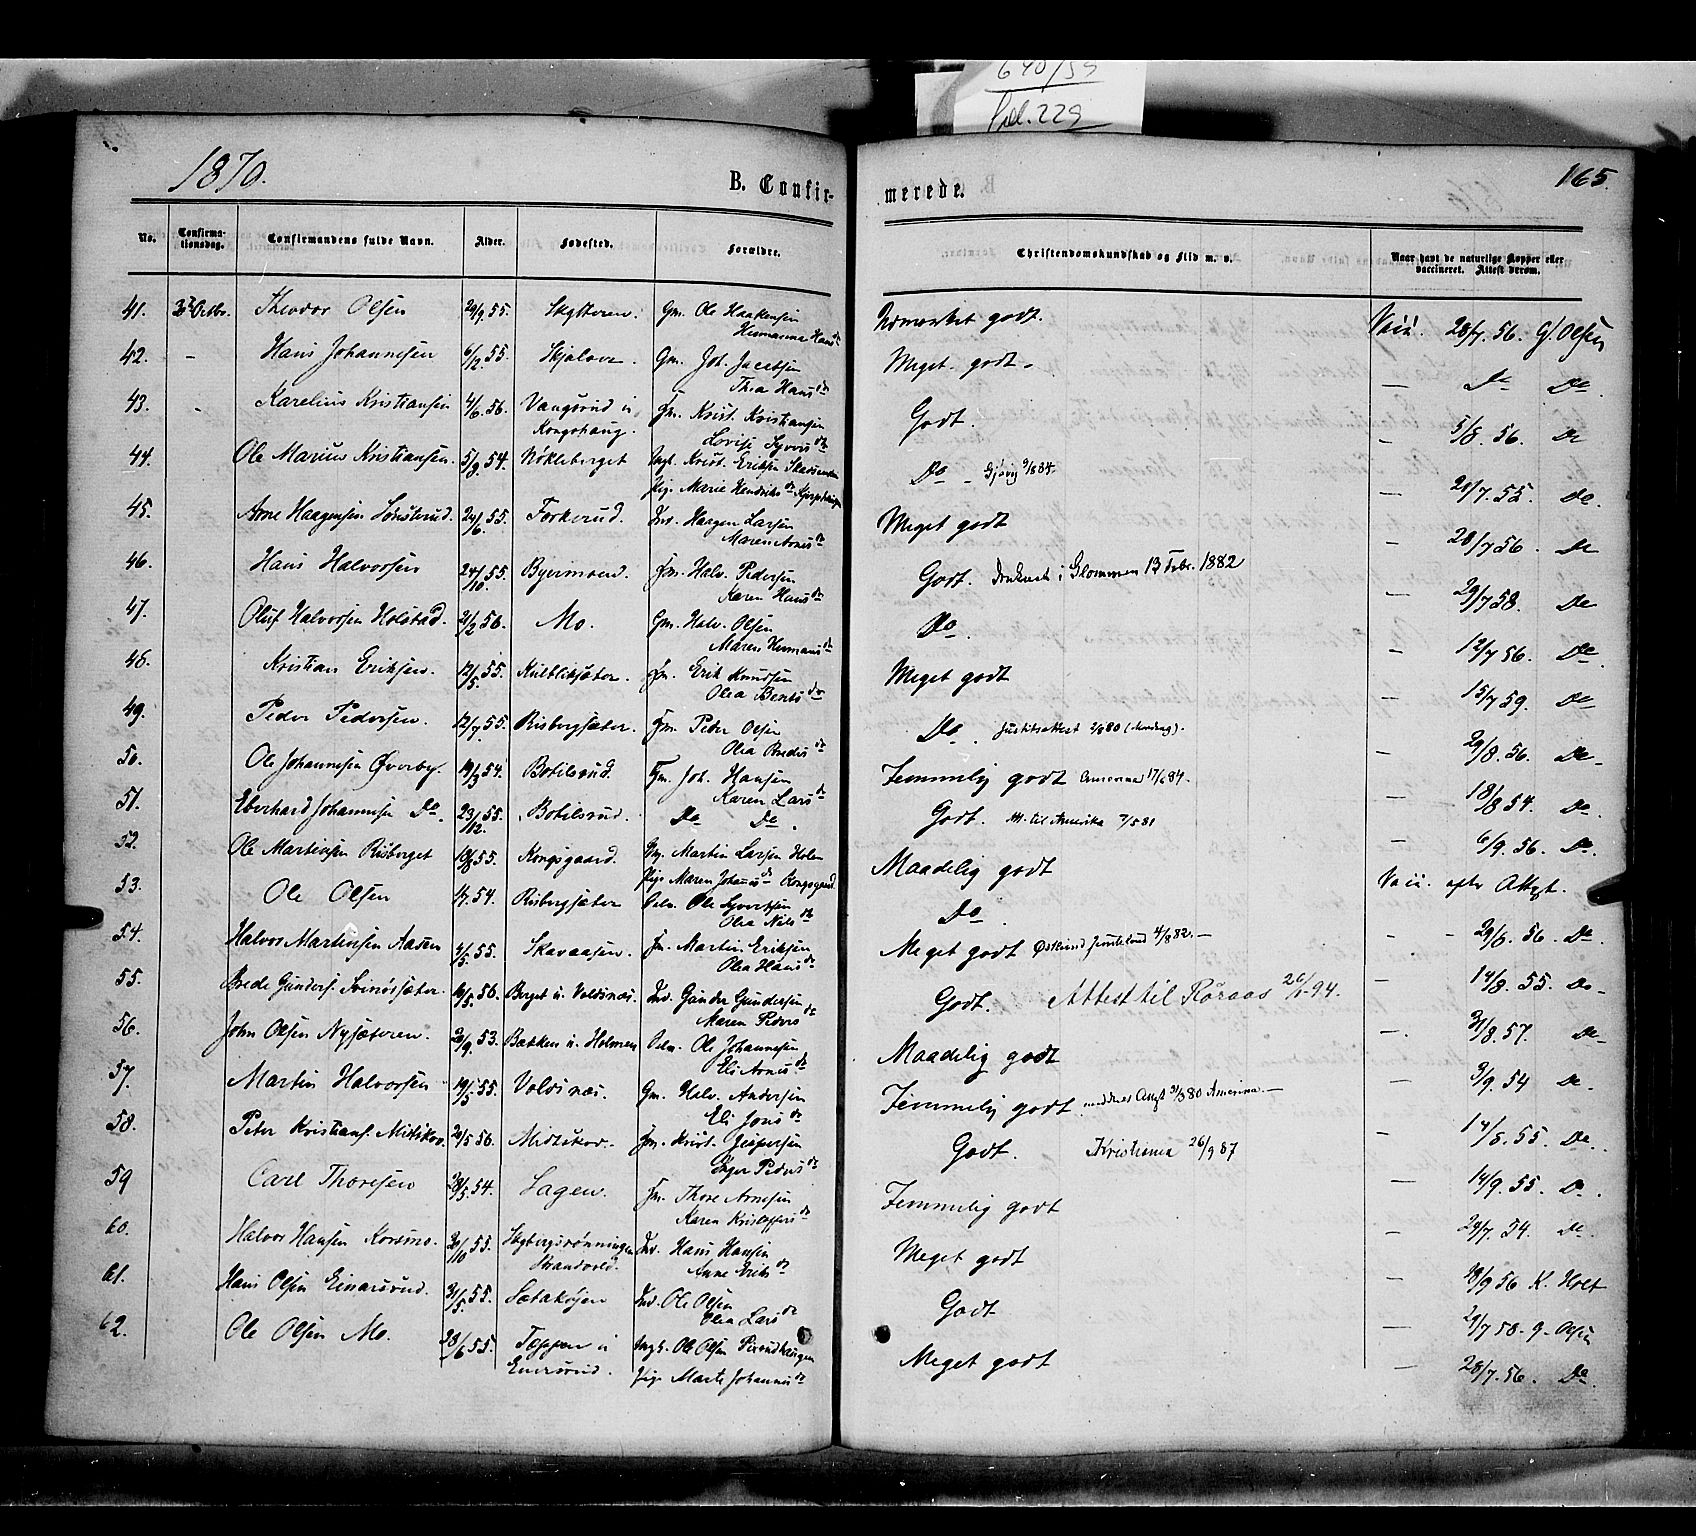 640/59
fol. 229
1870.
B. Confir-
merede.
165.
No.
Confirma-
tionsdag.
Confirmandens fulde Navn.
Alder.
Fødested.
Forældre.
Christendomskundskab og Flid m. v.
Naar havt de naturlige Kopper eller
vaccineret. Attest derom.
41. Octbr. Theodor Olsen 29/9 55. Gm. Ole Haakensen
Hermanna Hansdr
Udmærket godt. Vacc. 28/7. 56. G. Olsen
42. - Hans Johannesen 6/12 55. Skjalove Gm. Joh. Jacobsen
Thea Hansdr
Meget godt. — Do Do
43. - Karelius Kristiansen 4/6 56. Vangsrud u Fm. Krist. Kristiansen
Kongshaug. Lovise Syversdr
Godt. — 5/8. 56. Do
44. Ole Marius Kristiansen. 5/9 54. Nökleberget Ungk. Krist. Eriksen
Pige Marie Hendriksdr
Do - Gjøvig 9/8 84. — 28/7. 55. Do
45. Arne Haagensen 24/6 55. Forkerud. Ind. Haagen Larsen
Maren Arnesdr
Meget godt — 28/7 56. Do
46. Hans Halvorsen 24/10. 55. Byermoen. Fm. Halv. Pedersen
Karen Hansdr
Godt. Druknet i Glommen 13 Febr. 1882 — 29/7 58. Do
47. Oluf Halvorsen Holstad. 21/2 56. Mo. Gm. Halv. Olsen
Maren Hermansdr
Do. — 12/7 56. Do
48. Kristian Eriksen. 12/5. 55. Kulbliksæter. Fm. Erik Knudsen
Olea Bentsdr
Meget godt — 15/7 59. Do
49. Peder Pedersen. 12/7. 55. Risbergsæter. Fm. Peter Olsen
Olea Bredesdr
Do. 2/8 80 — 29/8. 56. Do
50. Ole Johannesen Øverby. 19/3 54. Botilsrud. Fm. Joh. Hansen
Karen Larsdr
Temmelig godt Amerika 17/4 84. — 18/8 54. Do
51. Eberhard Johannesen Do. 23/12. 55. Botilsrud. Do Do.
Godt. Att. til Amerika 7/5 81 — 6/9. 56. Do
52. Ole Martinsen Risberget 55. Kongsgaard. Gm. Martin Larsen Holm
Pige Maren Johansdr Kongsgaard.
Maadelig godt Vacc. efter Attest.
53. Ole Olsen 54. Risbergsæter Ole Syvertsen
Olea Nilsdr
Do. - - 29/6. 56. Do
54. Halvor Martinsen Aasen 4/5. 55. Skavaasen. Fm. Martin Eriksen
Olea Hansdr
Meget godt 4/8 82. — — 14/8. 55. Do
55. Brede Gunders. Svinössæter. 19/5. 56. Berget u. Voldsnæs. Ind. Gunder Gundersen
Maren Pedersdr
Godt. Attest til Röraas 26/1 94. — 31/8. 57. Do
56. John Olsen Nysæteren. 20/9. 53. Bækken u. Holmen Ole Johannesen
Eli Arnesdr
Maadelig godt — 3/9. 54 Do
57. Martin Halvorsen 19/5 55. Voldsnæs. Gm. Halv. Andersen
Eli Jonsdr
Temmelig godt Attest 31/3 80 Amerika. — — 14/5. 55. Do.
58. Peter Kristians. Midtskov. 20/5 56. Midtskov. Fm. Krist. Jespersen
Inger Pedersdr
Godt. Kristiania 26/9 87 — 14/9. 55. Do.
59 Carl Thoresen 28/5. 54. Lagen. Fm. Thore Arnesen
Karen Kristoffersdr
Temmelig godt — 29/7. 54. Do
60. Halvor Hansen Korsmo. 30/10 55. Ind. Hans Hansen
Strandvold. Anne Eriksdr
Meget godt — 28/9 56 K. Holt
61. Hans Olsen Einarsrud. 31/5. 55. Ind. Ole Olsen
Olea Larsdr
Godt — 29/7 58. G. Olsen
62. Ole Olsen Mo. 28/6 55. Toppen u Ungk. Ole Olsen
Einersrud. Pige Marte Johannesdr
Meget godt — 28/7. 56. Do